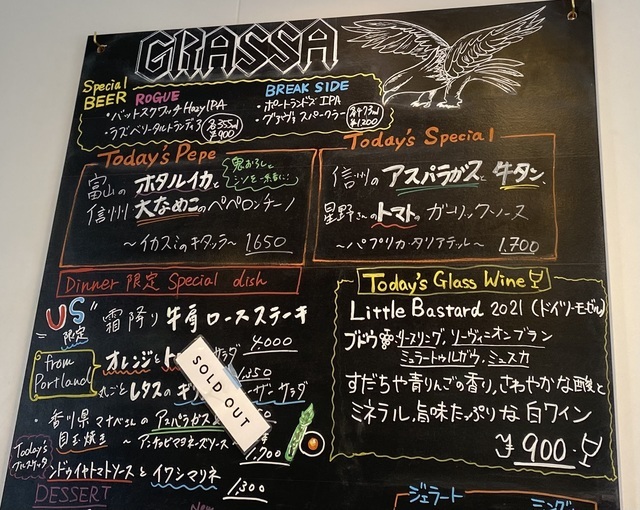 GRASSA
Special
BEER
ROGUE
・バットスクワッチ Hazy IPA
・ラズベリータルトランディア
各355ml
¥900
BREAK SIDE
・ポートランドズ IPA
各473ml
¥1,200
Today's Pepe
富山の ホタルイカと
鬼おろしと
信州 大なめこのペペロンチーノ
〜イカスミのキタッラ〜 1,650
Today's Special
信州の アスパラガスと 牛タン、
星野さんのトマトの ガーリックソース
〜パプリカ・タリアテッレ〜 1,700
Dinner 限定 Special dish
"US"
限定
霜降り 牛肩ロースステーキ
4,000
from
Portland
オレンジと
サラダ
丸ごとレタスの
サラダ
SOLD OUT
・香川県 マナベさんの アスパラガス
目玉焼き 〜アンチョビマヨネーズソース〜
1,700
Today's
ンドゥイヤトマトソースと イワシマリネ
1,300
DESSERT
New
Today's Glass Wine
Little Bastard 2021 (ドイツ・モーゼル)
ブドウ リースリング, ソーヴィニオンブラン
ミュラートゥルガウ, ミュスカ
すだちや青りんごの香り、さわやかな酸と
ミネラル、旨味たっぷりな 白ワイン
¥900.-
ジェラート